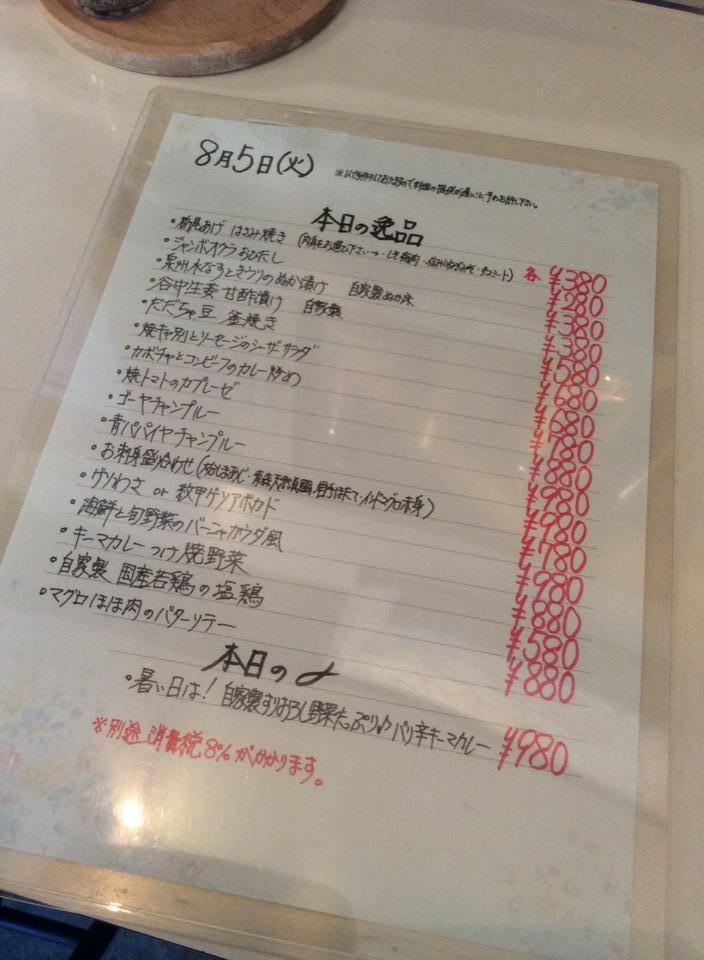 8月5日(火)
本日の逸品
・栃尾あげ はさみ焼き (内容をお選び下さい 各 ¥380
・ジャンボオクラおひたし ¥280
・泉州水なすとキウリのぬか漬け 自家製ぬか床 ¥380
・谷中生姜 甘酢漬け 自家製 ¥380
・だだちゃ豆 釜焼き ¥580
・焼キャ別とソーセージのシーザーサラダ ¥680
・カボチャとコンビーフのカレー炒め ¥680
・焼トマトのカプレーゼ ¥780
・ゴーヤチャンプルー ¥880
・青パパイヤチャンプルー ¥980
・お刺身盛り合わせ ¥980
・ゲソわさ or 紋甲ゲソアボカド ¥780
・海鮮と旬野菜のバーニャカウダ風 ¥980
・キーマカレーつけ焼野菜 ¥880
・自家製 国産若鶏の塩鶏 ¥580
・マグロほほ肉のバターソテー ¥880
本日の〆
・暑い日は!自家製すりおろし野菜たっぷり♪バリ辛キーマカレー ¥980
※別途 消費税8%がかかります。